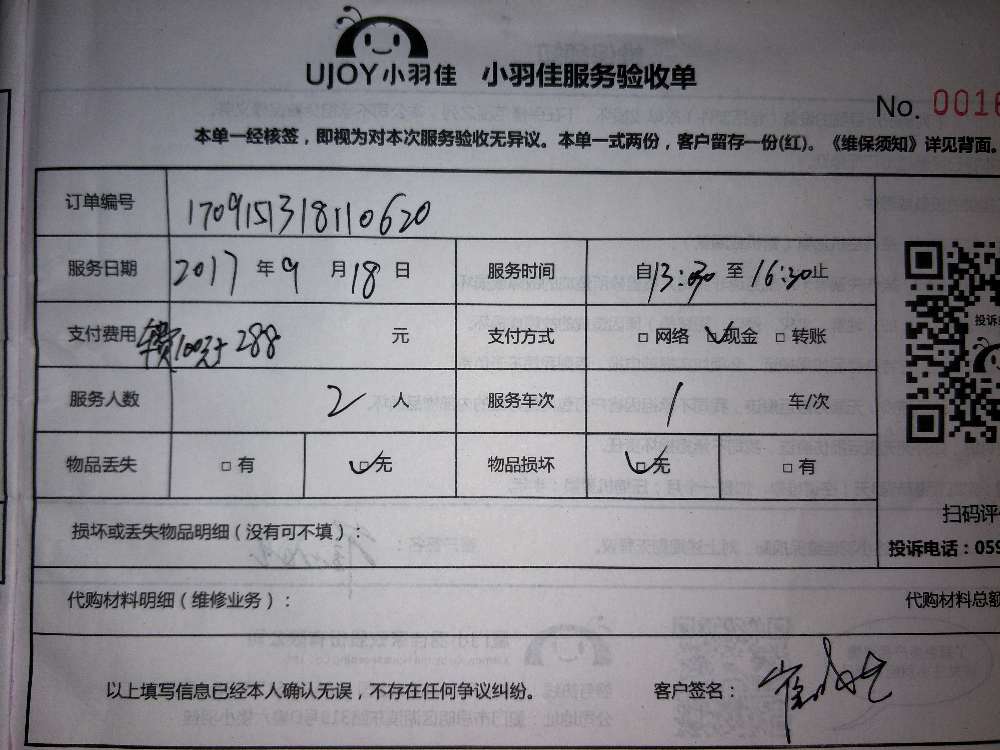 UJOY小羽佳 小羽佳服务验收单
No. 0010
本单一经核签，即视为对本次服务验收无异议。本单一式两份，客户留存一份(红)。《维保须知》详见背面。
订单编号 1709151318110620
服务日期 2017 年 9 月 18 日 服务时间 自 13:30 至 16:30 止
支付费用 100元+288 元 支付方式 □ 网络 ☑ 现金 □ 转账
服务人数 2 人 服务车次 1 车/次
物品丢失 □ 有 ☑ 无 物品损坏 ☑ 无 □ 有
扫码评
损坏或丢失物品明细（没有可不填）：
投诉电话：059
代购材料明细（维修业务）： 代购材料总额
以上填写信息已经本人确认无误，不存在任何争议纠纷。 客户签名：